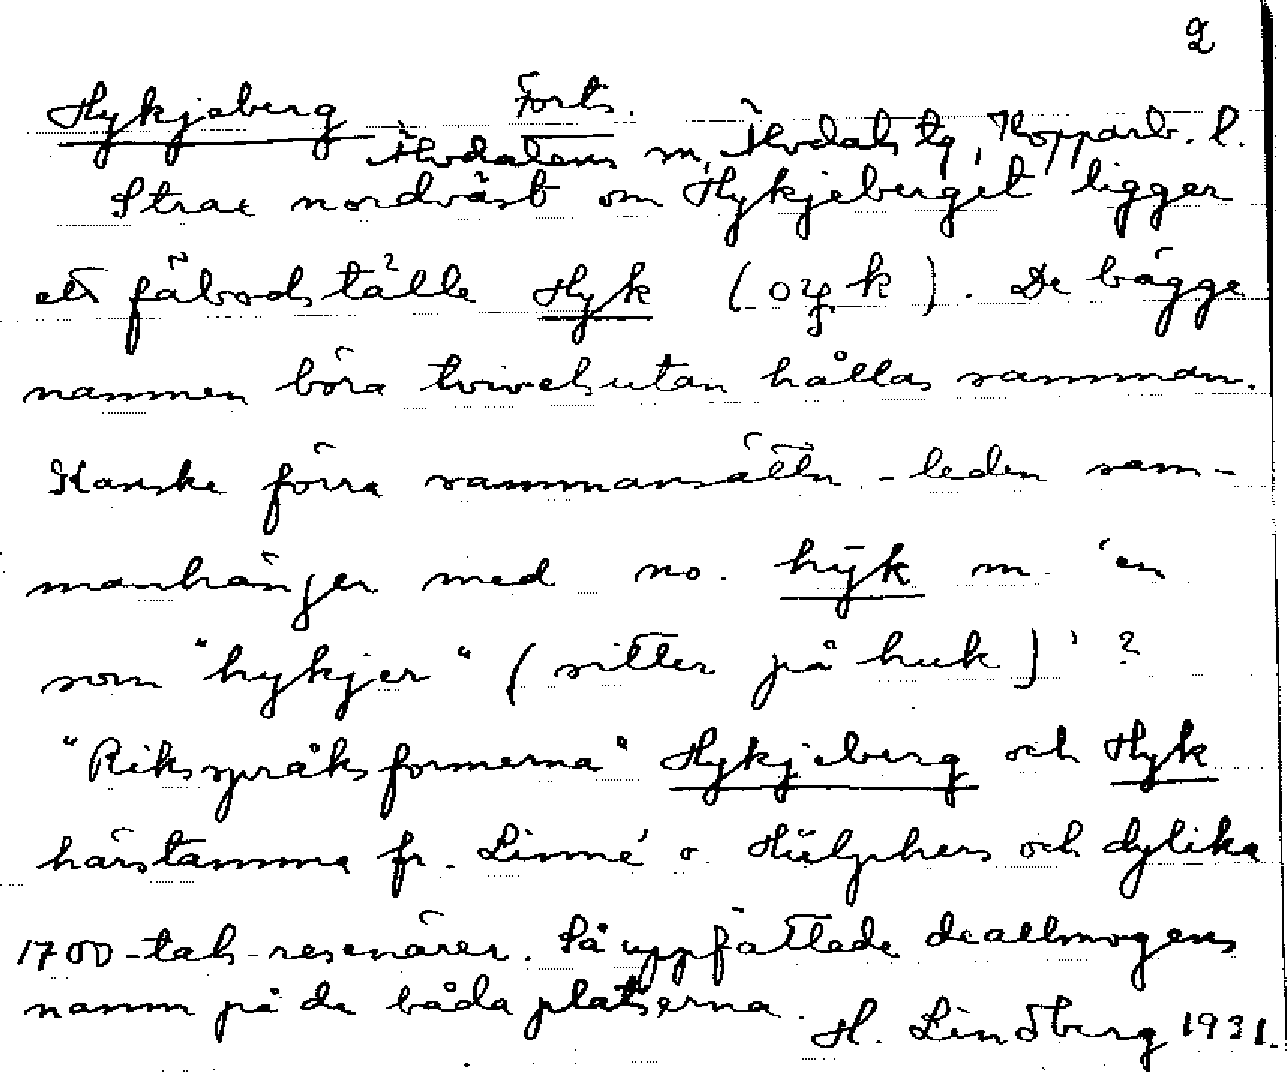 2
Hykjeberg Forts.
Älvdalens sn, Älvdals tg, Kopparb. l.
Strax nordväst om Hykjeberget ligger
ett fäbodställe Hyk (oyk). De bägge
namnen böra tvivelsutan hållas samman.
Kanske förra sammansättn-leden sam-
manhänger med no. hȳk m. 'en
som "hykjer" (sitter på huk)'?
"Riksspråksformerna" Hykjeberg och Hyk
härstamma fr. Linné o. Hülphers och dylika
1700-tals-resenärer. Så uppfattade de allmogens
namn på de båda platserna.
H. Lindberg 1931.